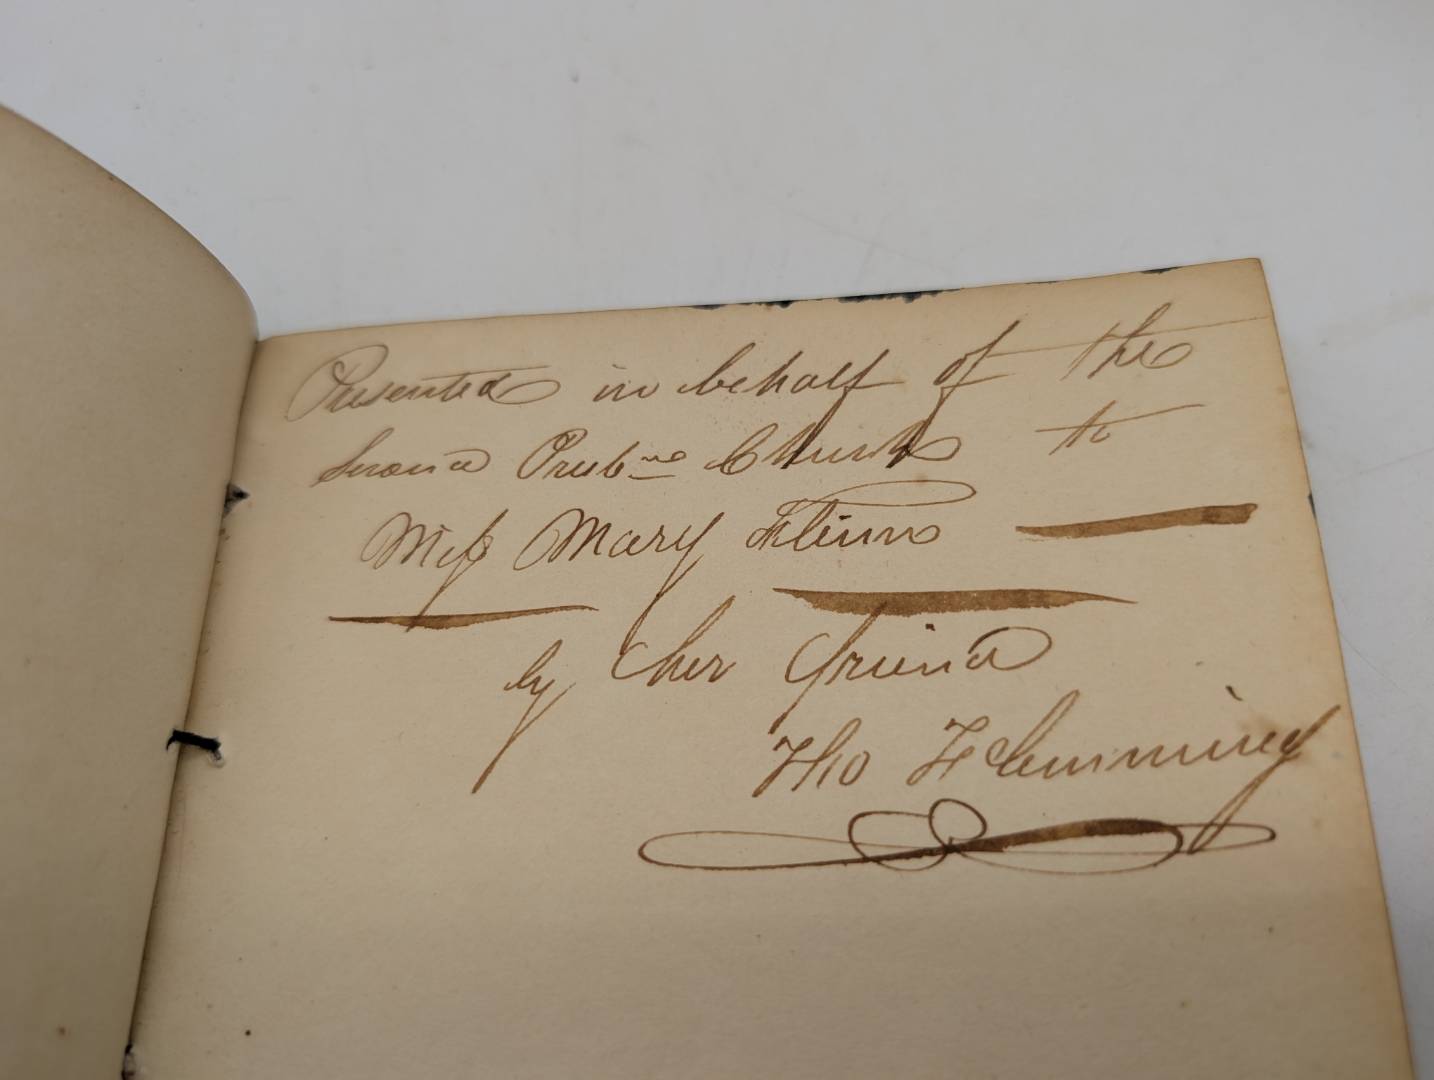 Presented in behalf of the
Second Presb Church to
Miss Mary
by her friend
Tho Flemming